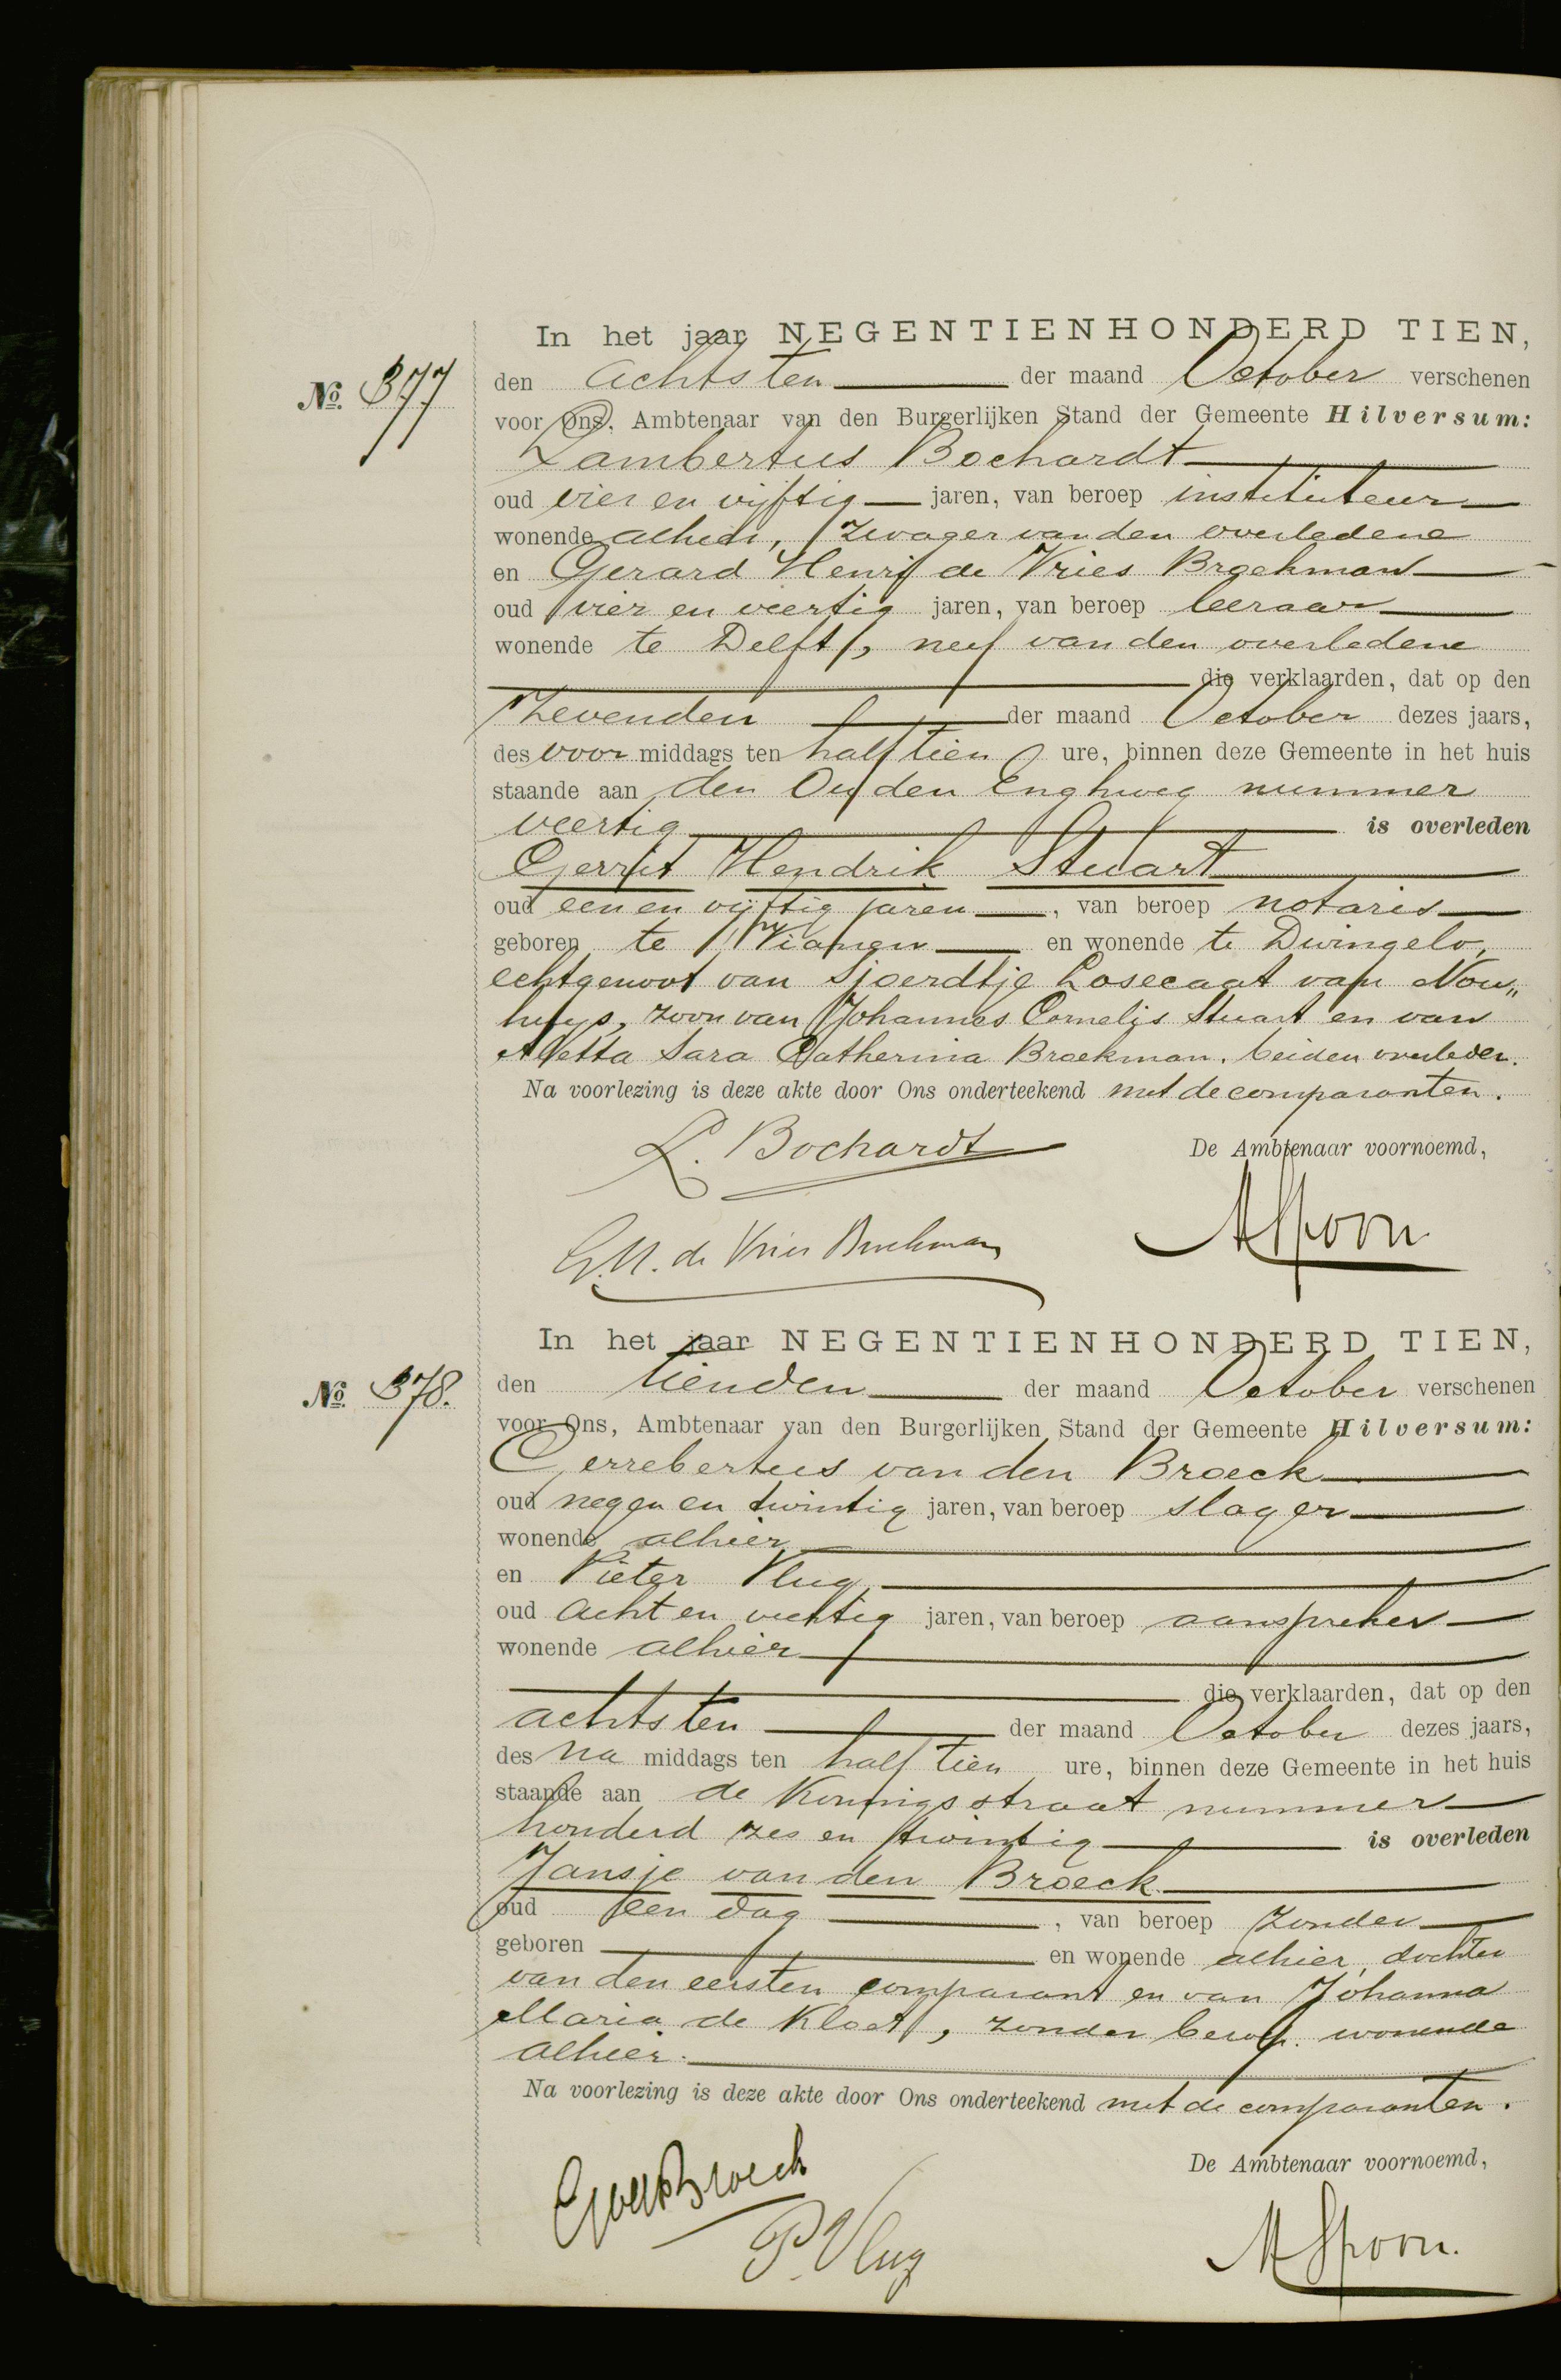 In het jaar NEGENTIENHONDERD TIEN,
No. 377
den achtsten der maand October verschenen
voor Ons, Ambtenaar van den Burgerlijken Stand der Gemeente Hilversum:
Lambertus Bochardt
oud vier en vijftig jaren, van beroep instituteur
wonende alhier, zwager van den overledene
en Gerard Henri de Vries Broekman
oud vier en veertig jaren, van beroep leeraar
wonende te Delft, neef van den overledene
die verklaarden, dat op den
zevenden der maand October dezes jaars,
des voor middags ten half tien ure, binnen deze Gemeente in het huis
staande aan den Ouden Enghweg nummer
veertig is overleden
Gerrit Hendrik Stuart
oud een en vijftig jaren, van beroep notaris
geboren te Vianen en wonende te Dwingelo,
echtgenoot van Sjoerdtje Losecaat van Nou„
huys, zoon van Johannes Cornelis Stuart en van
Aletta Sara Catherina Broekman, beiden overleden.
Na voorlezing is deze akte door Ons onderteekend met de comparanten.
L. Bochardt
De Ambtenaar voornoemd,
G.H. de Vries Broekman
A Spoon
In het jaar NEGENTIENHONDERD TIEN,
No. 378.
den tienden der maand October verschenen
voor Ons, Ambtenaar van den Burgerlijken Stand der Gemeente Hilversum:
Gerrebertus van den Broeck
oud negen en twintig jaren, van beroep slager
wonende alhier
en Pieter Vlug
oud acht en veertig jaren, van beroep aanspreker
wonende alhier
die verklaarden, dat op den
achtsten der maand October dezes jaars,
des na middags ten half tien ure, binnen deze Gemeente in het huis
staande aan de Koningsstraat nummer
honderd zes en twintig is overleden
Jansje van den Broeck
oud een dag, van beroep zonder
geboren en wonende alhier, dochter
van den eersten comparant en van Johanna
Maria de Kloet, zonder beroep, wonende
alhier.
Na voorlezing is deze akte door Ons onderteekend met de comparanten.
De Ambtenaar voornoemd,
GvdBroeck
P. Vlug
A Spoon.